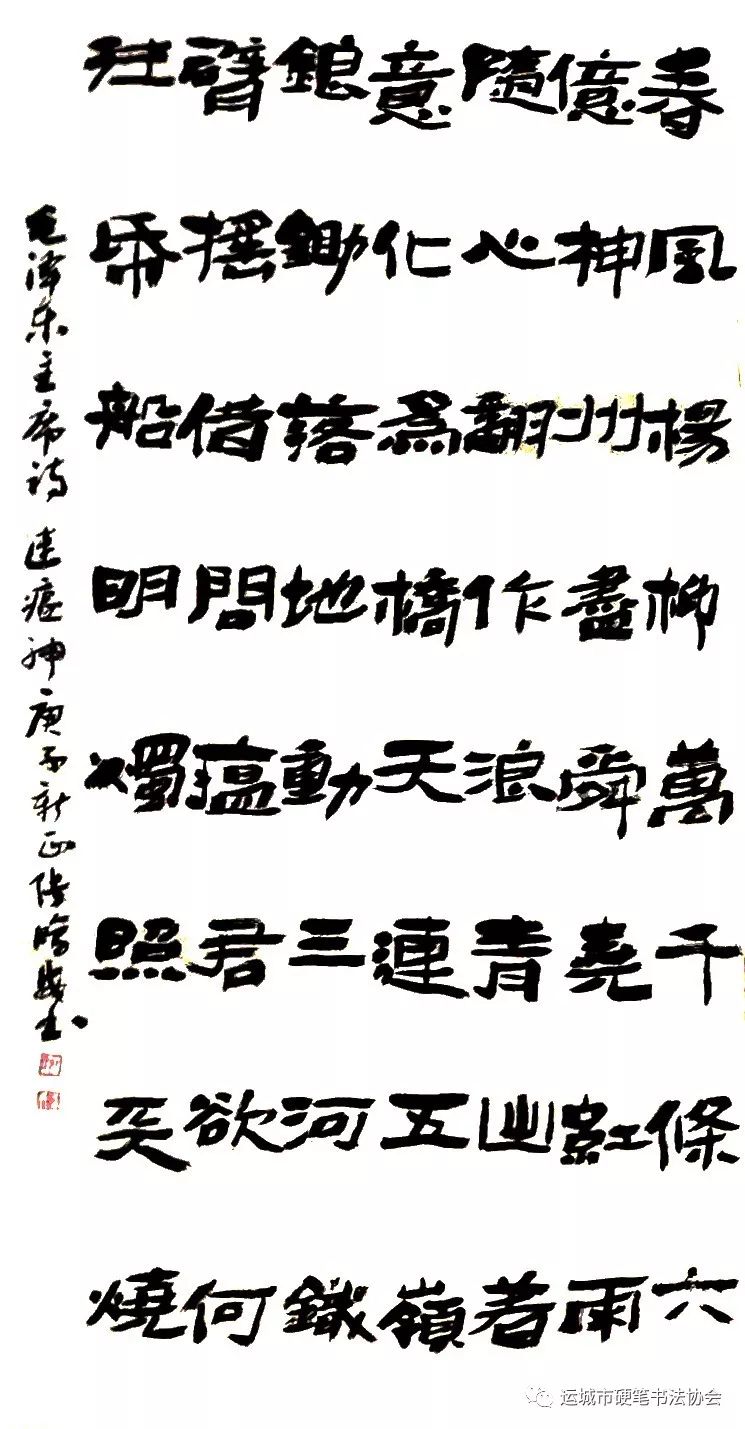 春風楊柳萬千條六
億神州盡舜堯紅雨
隨心翻作浪青山著
意化爲橋天連五嶺
銀鋤落地動三河鐵
臂搖借問瘟君欲何
往帋船明燭照天燒
毛泽东主席诗 送瘟神 庚子新正书
运城市硬笔书法协会